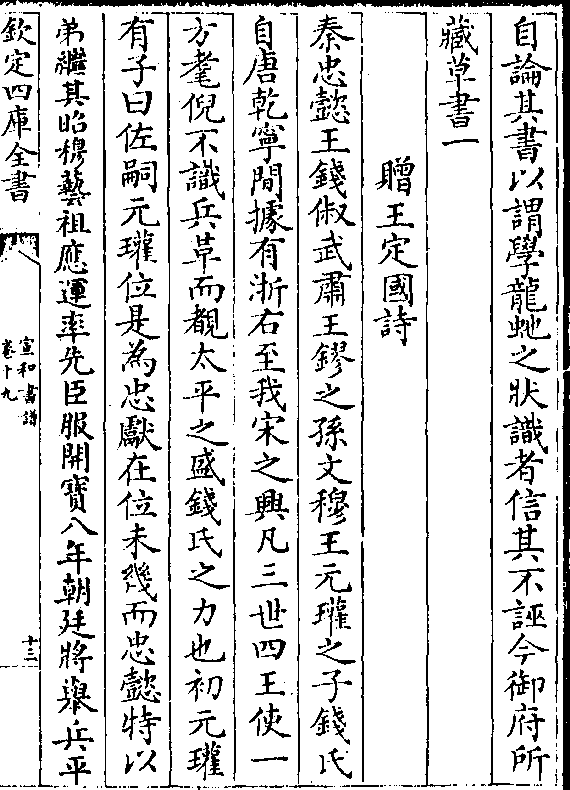 自論其書以謂學龍虵之狀識者信其不誣今御府所
藏草書一
贈王定國詩
秦忠懿王錢俶武肅王鏐之孫文穆王元瓘之子錢氏
自唐乾寧間據有浙右至我宋之興凡三世四王使一
方耄倪不識兵革而覩太平之盛錢氏之力也初元瓘
有子曰佐嗣元瓘位是為忠獻在位未幾而忠懿特以
弟繼其昭穆藝祖應運率先臣服開寶八年朝廷將舉兵平
欽定四庫全書
宣和書譜
卷十九
十三